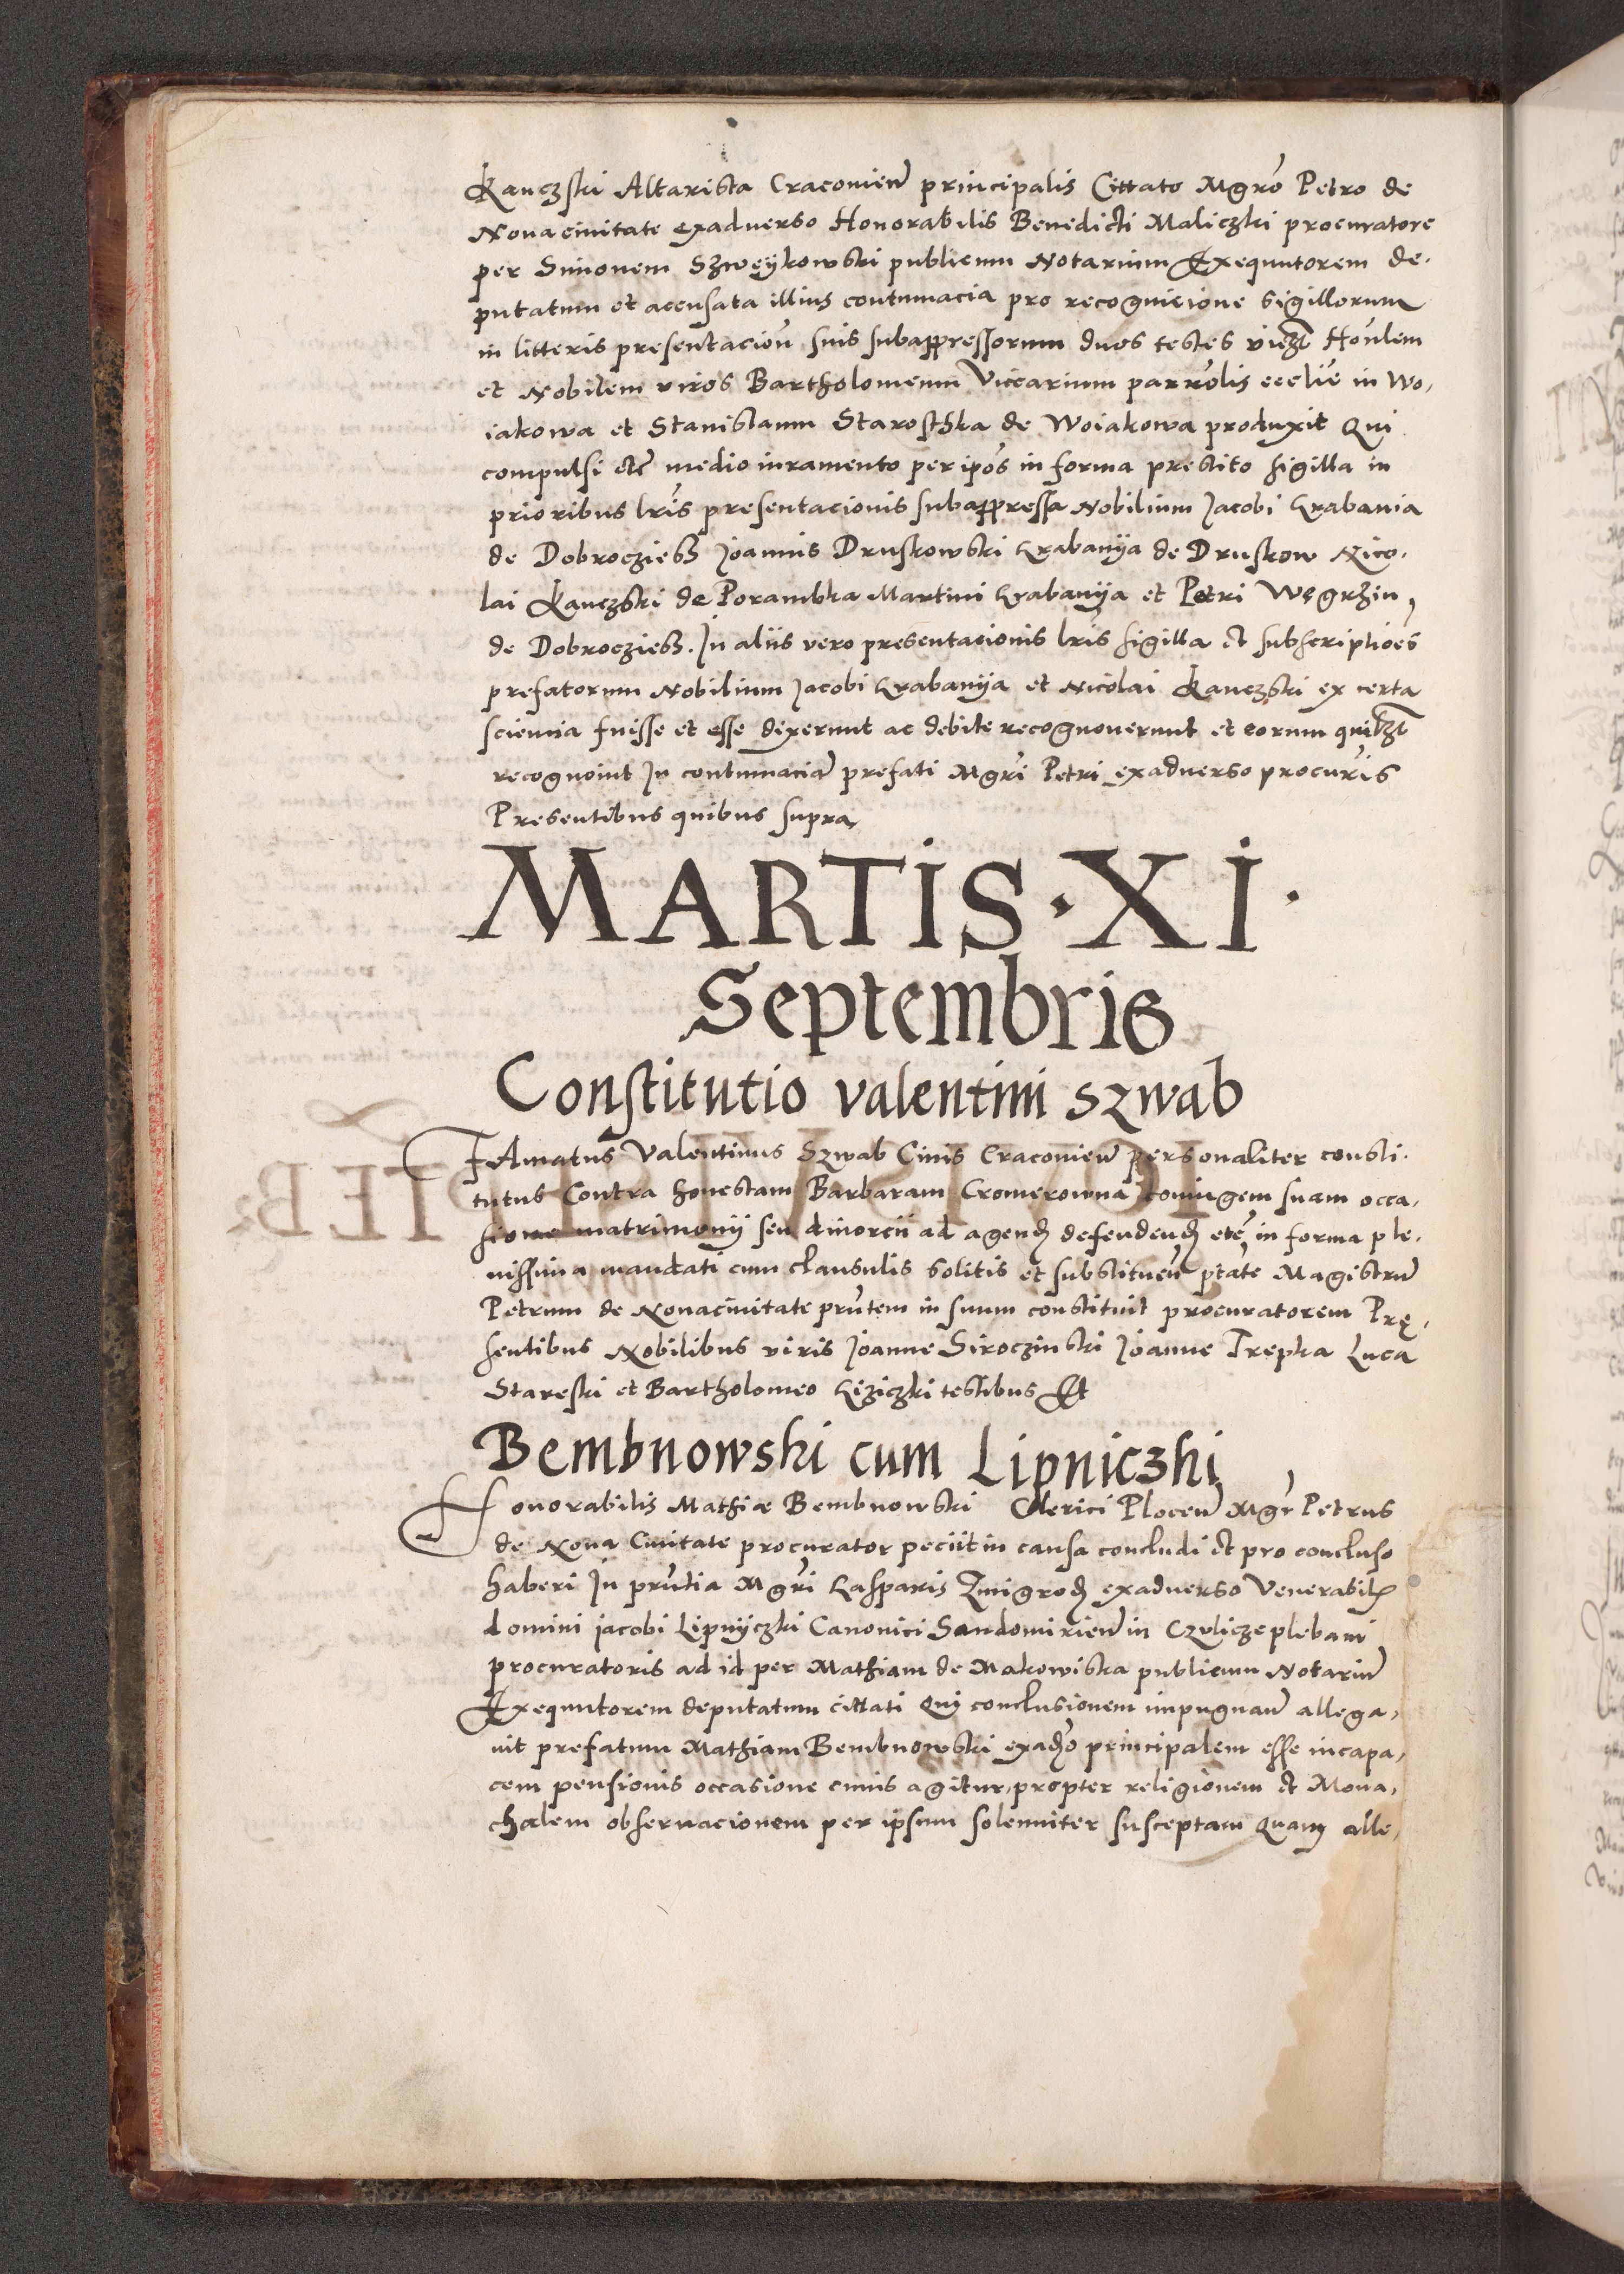 Kanczski Altarista Cracovien̄ principalis Cittato Mgr̄o Petro de
Nova civitate exadverso Honorabilis Benedicti Maliczki procuratore
per Simonem Szweykowski publicum Notarium Exequutorem de-
putatum et accusata illius contumacia pro recognicione sigillorum
in litteris presentacioñ suis subappressorum duos testes vicz̄t Hoñlem
et Nobilem viros Bartholomeum Vicearium parrolis eccl̄ie in Wo-
iakowa et Stanislaum Staroschka de Woiakowa produxit Qui
compulsi etc̄ medio iuramento per ip̄os in forma prestito sigilla in
prioribus lr̄is presentacionis subappressa Nobilium Jacobi Krabania
de Dobrocziesz Joannis Druskowski Krabanÿa de Druskow Nico-
lai Kanczski de Porambka Martini Krabanÿa et Petri Węgrzin
de Dobrocziesz. In aliis vero presentacionis lr̄is sigilla et subscriptio̅es
prefatorum Nobilium Jacobi Krabanÿa et Nicolai Kanczski ex certa
sciencia fuisse et esse dixerunt ac debite recognoverunt et eorum quilz̄t
recognovit In contumaciam̄ prefati Mgr̄i Petri exadverso procur̄is
Presentibus quibus supra
MARTIS · XI ·
Septembris
Constitutio valentini szwab
FAmatus Valentinus Szwab Civis Cracovien̄ personaliter consti-
tutus Contra honestam Barbaram Cromerowna coniugem suam occa-
sione matrimonÿ seu divorcii ad agend̄ defendend̄ etc̄ in forma ple-
nissima mandati cum clausulis solitis et substituen̄ ptate Magistrum̄
Petrum de Novacivitate pr̄ntem in suum constituit procuratorem Prę-
sentibus Nobilibus viris Joanne Siroczinski Joanne Trepka Luca
Stareski et Bartholomeo Kiziczki testibus Et
Bembnowski cum Lipniczki
Honorabilis Mathiæ Bembnowski Clerici Plocen̄ Mgr̄ Petrus
de Nova Civitate procurator peciit in causa concludi et pro concluso
haberi In pr̄ntia Mgr̄i Casparis Zmigrod̄ exadverso Venerabil̄
domini Jacobi Lipnÿczki Canonici Sandomirien̄ in Czulicze plebani
procuratoris ad id per Mathiam de Makowiska publicum Notarium̄
Exequutorem deputatum cittati Qui conclusionem impugnan̄ allega-
vit prefatum Mathiam Bembnowski exad̄o principalem esse incapa-
cem pensionis occasione cuius agitur, propter religionem et Mona-
chalem observacionem per ipsum solenniter susceptam Quam alle-